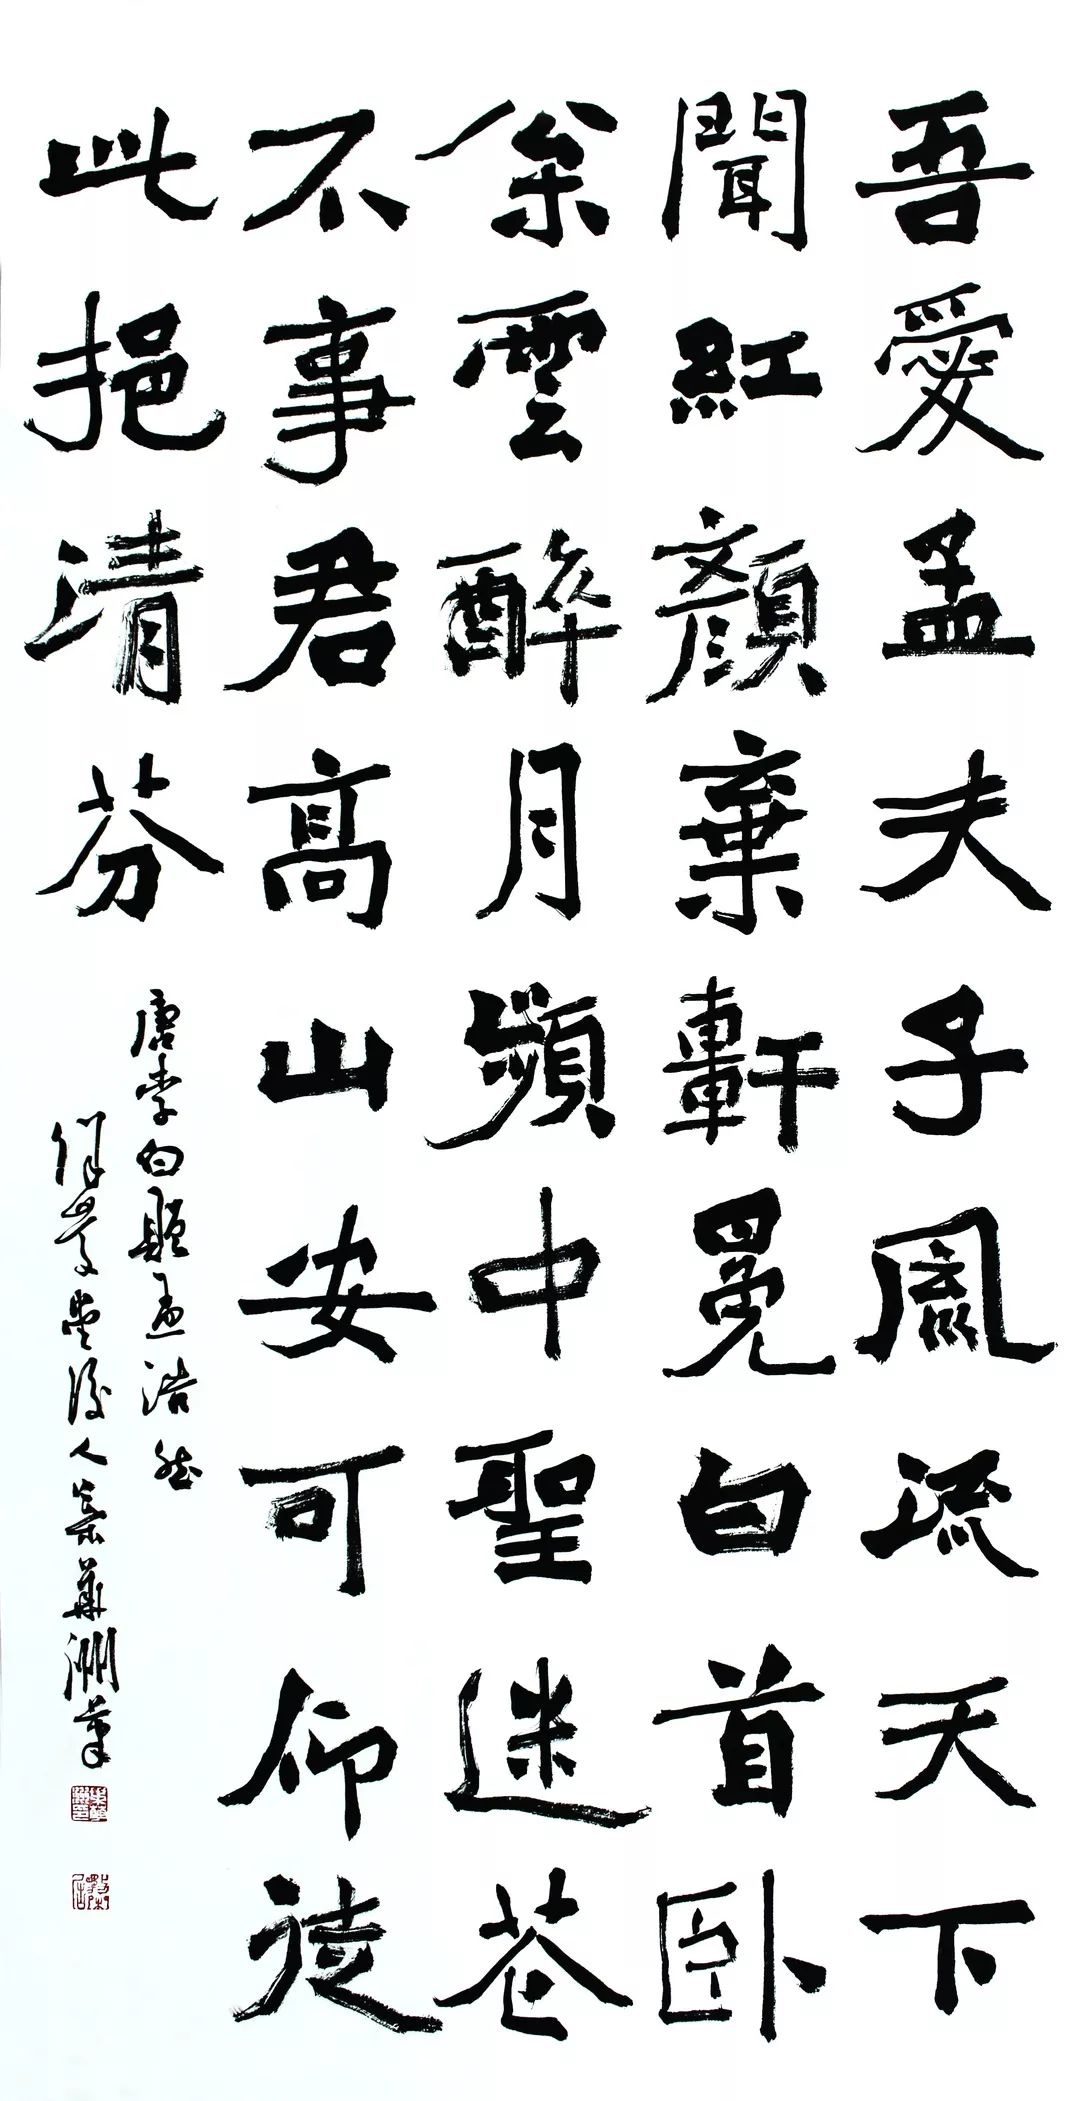 吾愛孟夫子風流天下
聞紅顔棄軒冕白首卧
枀雲醉月頻中聖迷花
不事君髙山安可仰徒
此挹清芬
唐李白贈孟浩然
堂後人 華洲筆